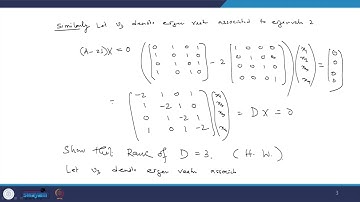 Similarly Let v3 denote eigen vector associated to eigenvalue 2
(A-2I)X = 0 ( [0 1 0 1; 1 0 1 0; 0 1 0 1; 1 0 1 0] - 2 [1 0 0 0; 0 1 0 0; 0 0 1 0; 0 0 0 1] ) (x1 x2 x3 x4) = (0 0 0 0)
= (-2 1 0 1; 1 -2 1 0; 0 1 -2 1; 1 0 1 -2) (x1 x2 x3 x4) = DX = 0
Show that Rank of D = 3. (H.W.)
Let v3 denote eigen vector associat
swayam
3